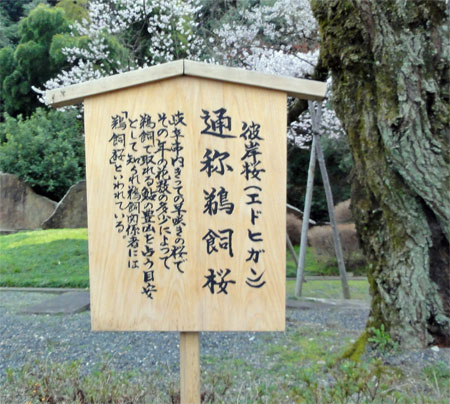 彼岸桜(エドヒガン)
通称鵜飼桜
岐阜市内きっての早咲きの桜で
その年の花数の多少によって
鵜飼で取れる鮎の豊凶を占う目安
として知られ鵜飼関係者には
「鵜飼桜」といわれている。